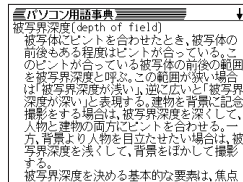 パソコン用語事典
被写界深度(depth of field)
被写体にピントを合わせたとき、被写体の
前後もある程度はピントが合っている。こ
のピントが合っている被写体の前後の範囲
を被写界深度と呼ぶ。この範囲が狭い場合
は「被写界深度が浅い」、逆に広いと「被写界
深度が深い」と表現する。建物を背景に記念
撮影をする場合は、被写界深度を深くして、
人物と建物の両方にピントを合わせる。一
方、背景より人物を目立たせたい場合は、被
写界深度を浅くして、背景をぼかして撮影
する。
被写界深度を決める基本的な要素は、焦点